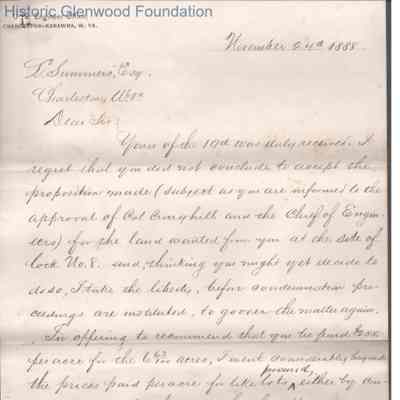 Historic Glenwood Foundation
U.S. Engineer Office,
CHARLESTON-KANAWHA, W. VA.
November 24th 1888.
L. Summers, Esq.
Charleston, W.Va.
Dear Sir;
Yours of the 19th was duly received. I
regret that you did not conclude to accept the
proposition made (subject as you are informed to the
approval of Col Craighill and the Chief of Engin-
eers) for the land wanted from you at the site of
Lock No. 8. and, thinking you might yet decide to
do so, I take the liberty, before condemnation pro-
ceedings are instituted, to go over the matter again.
In offering to recommend that you be paid
per acre for the acres, I went considerably beyond
the prices paid per acre for like lots, either by